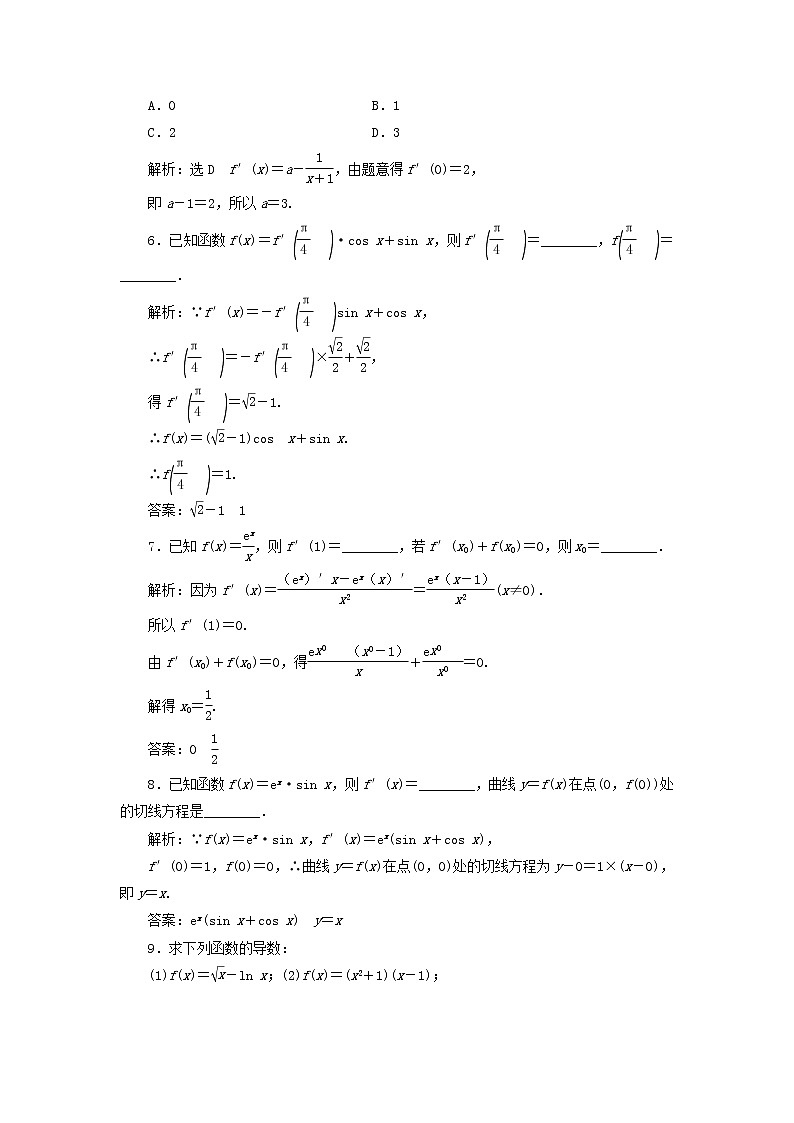 A.0 B.1
C.2 D.3
解析:选 D f′(x)=a-\frac{1}{x+1},由题意得 f′(0)=2,
即 a-1=2,所以 a=3.
6.已知函数 f(x)=f′(\frac{π}{4})·cos x+sin x,则 f′(\frac{π}{4})=________,f(\frac{π}{4})=
________.
解析:∵f′(x)=-f′(\frac{π}{4})sin x+cos x,
∴f′(\frac{π}{4})=-f′(\frac{π}{4})×\frac{√2}{2}+\frac{√2}{2},
得 f′(\frac{π}{4})=√2-1.
∴f(x)=(√2-1)cos x+sin x.
∴f(\frac{π}{4})=1.
答案:√2-1 1
7.已知 f(x)=\frac{e^x}{x},则 f′(1)=________,若 f′(x₀)+f(x₀)=0,则 x₀=________.
解析:因为 f′(x)=\frac{(e^x)′x-e^x(x)′}{x²}=\frac{e^x(x-1)}{x²}(x≠0).
所以 f′(1)=0.
由 f′(x₀)+f(x₀)=0,得\frac{ex0 (x0-1)}{x}+\frac{ex0}{x0}=0.
解得 x₀=\frac{1}{2}.
答案:0 \frac{1}{2}
8.已知函数 f(x)=e^x·sin x,则 f′(x)=________,曲线 y=f(x)在点(0,f(0))处
的切线方程是________.
解析:∵f(x)=e^x·sin x,f′(x)=e^x(sin x+cos x),
f′(0)=1,f(0)=0,∴曲线 y=f(x)在点(0,0)处的切线方程为 y-0=1×(x-0),
即 y=x.
答案:e^x(sin x+cos x) y=x
9.求下列函数的导数:
(1)f(x)=√x-ln x;(2)f(x)=(x²+1)(x-1);